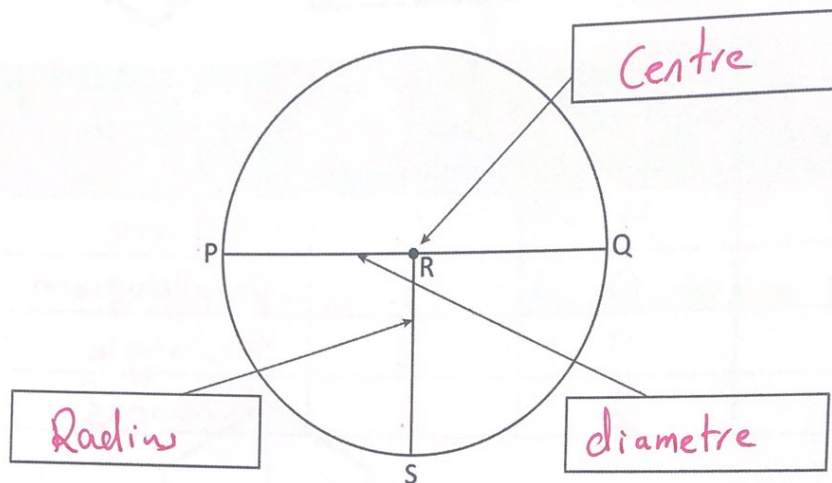 Centre
P
R
Q
Radius
diametre
S